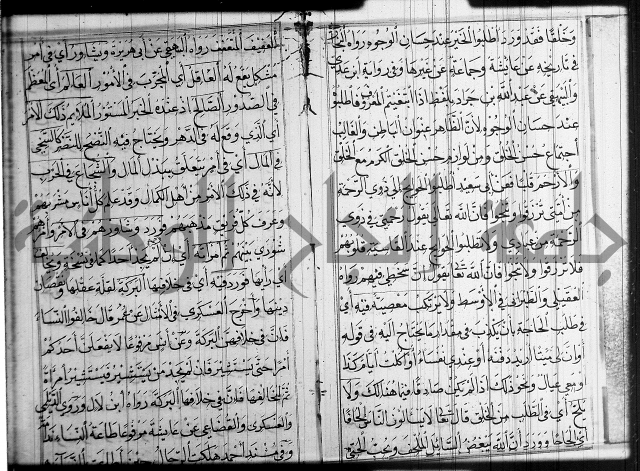 وخلقا فقد ورد اطلبوا الخير عند حسان الوجوه رواه البخاري
في تاريخه عن عائشة وجماعة عن غيرها وفي رواية ابن عدي
والبيهقي عن عبد الله بن جراد بلفظ اذا ابتغيتم المعروف فاطلبوه
عند حسان الوجوه لان الظاهر عنوان الباطن والغالب
اجتماع حسن الخلق ومن لوازم حسن الخلق الكرم مع الخلق
والارحم قلبا فعن ابي سعيد اطلبوا الحوائج الى ذوي الرحمة
من امتي ترزقوا وتنجحوا فان الله تعالى يقول رحمتي في ذوي
الرحمة من عبادي ولا تطلبوا الحوائج عند القاسية قلوبهم
فلا ترزقوا ولا تنجحوا فان الله تعالى يقول ان سخطي فيهم رواه
العقيلي والطبراني في الاوسط ولا يرتكب معصية فيه اي
في طلب الحاجة بان يكذب في مقدار ما يحتاج اليه في قوله
وان لي ميتا اريد دفنه او عندي نفساء او اكلت ايام كذا
ومعي عيال ونحو ذلك اذا لم يكن صادقا فيما هنالك ولا
يلح اي في الطلب من الخلق قال تعالى لا يسألون الناس الحافا
اي الحاحا وورد ان الله يبغض السائل الملحف ويحب الحيي
العفيف المتعفف رواه البيهقي عن ابي هريرة ويشاور اي في امر
مشكل يقع له العاقل اي المجرب في الامور العالم اي المعظم
في الصدور الصالح اذ عنده الخير المستور الملايم ذلك الامر
اي الذي وقع له في الدهر ويحتاج فيه النصح للنصر كالسخي
في المال اي في امر يتعلق ببذل المال والشجاع في الحرب
لانه في ذلك الامر من اهل الكمال وقد علم كل اناس مشربهم
وعرف كل فريق مذهبهم وورد وشاورهم في الامر وامرهم
شورى بينهم ثم امراته اي ان لم يجد احدا كما في نسخة ويخالف
اي رايها فورد فيه اي في خلافها البركة لقلة عقلها ونقصان
دينها واخرج العسكري في الامثال عن عمر قال خالفوا النساء
فان في خلافهن البركة وعن انس مرفوعا لا يفعلن احدكم
امرا حتى يستشير فان لم يجد من يستشير فيستشير امراة
ثم ليخالفها فان في خلافها البركة رواه ابن لال وروى الديلمي
والعسكري والقضاعي عن عائشة مرفوعا طاعة النساء ندامة
وفي مسند احمد هلكت الرجال حين اطاعت النساء
جامعة النجاح الوطنية